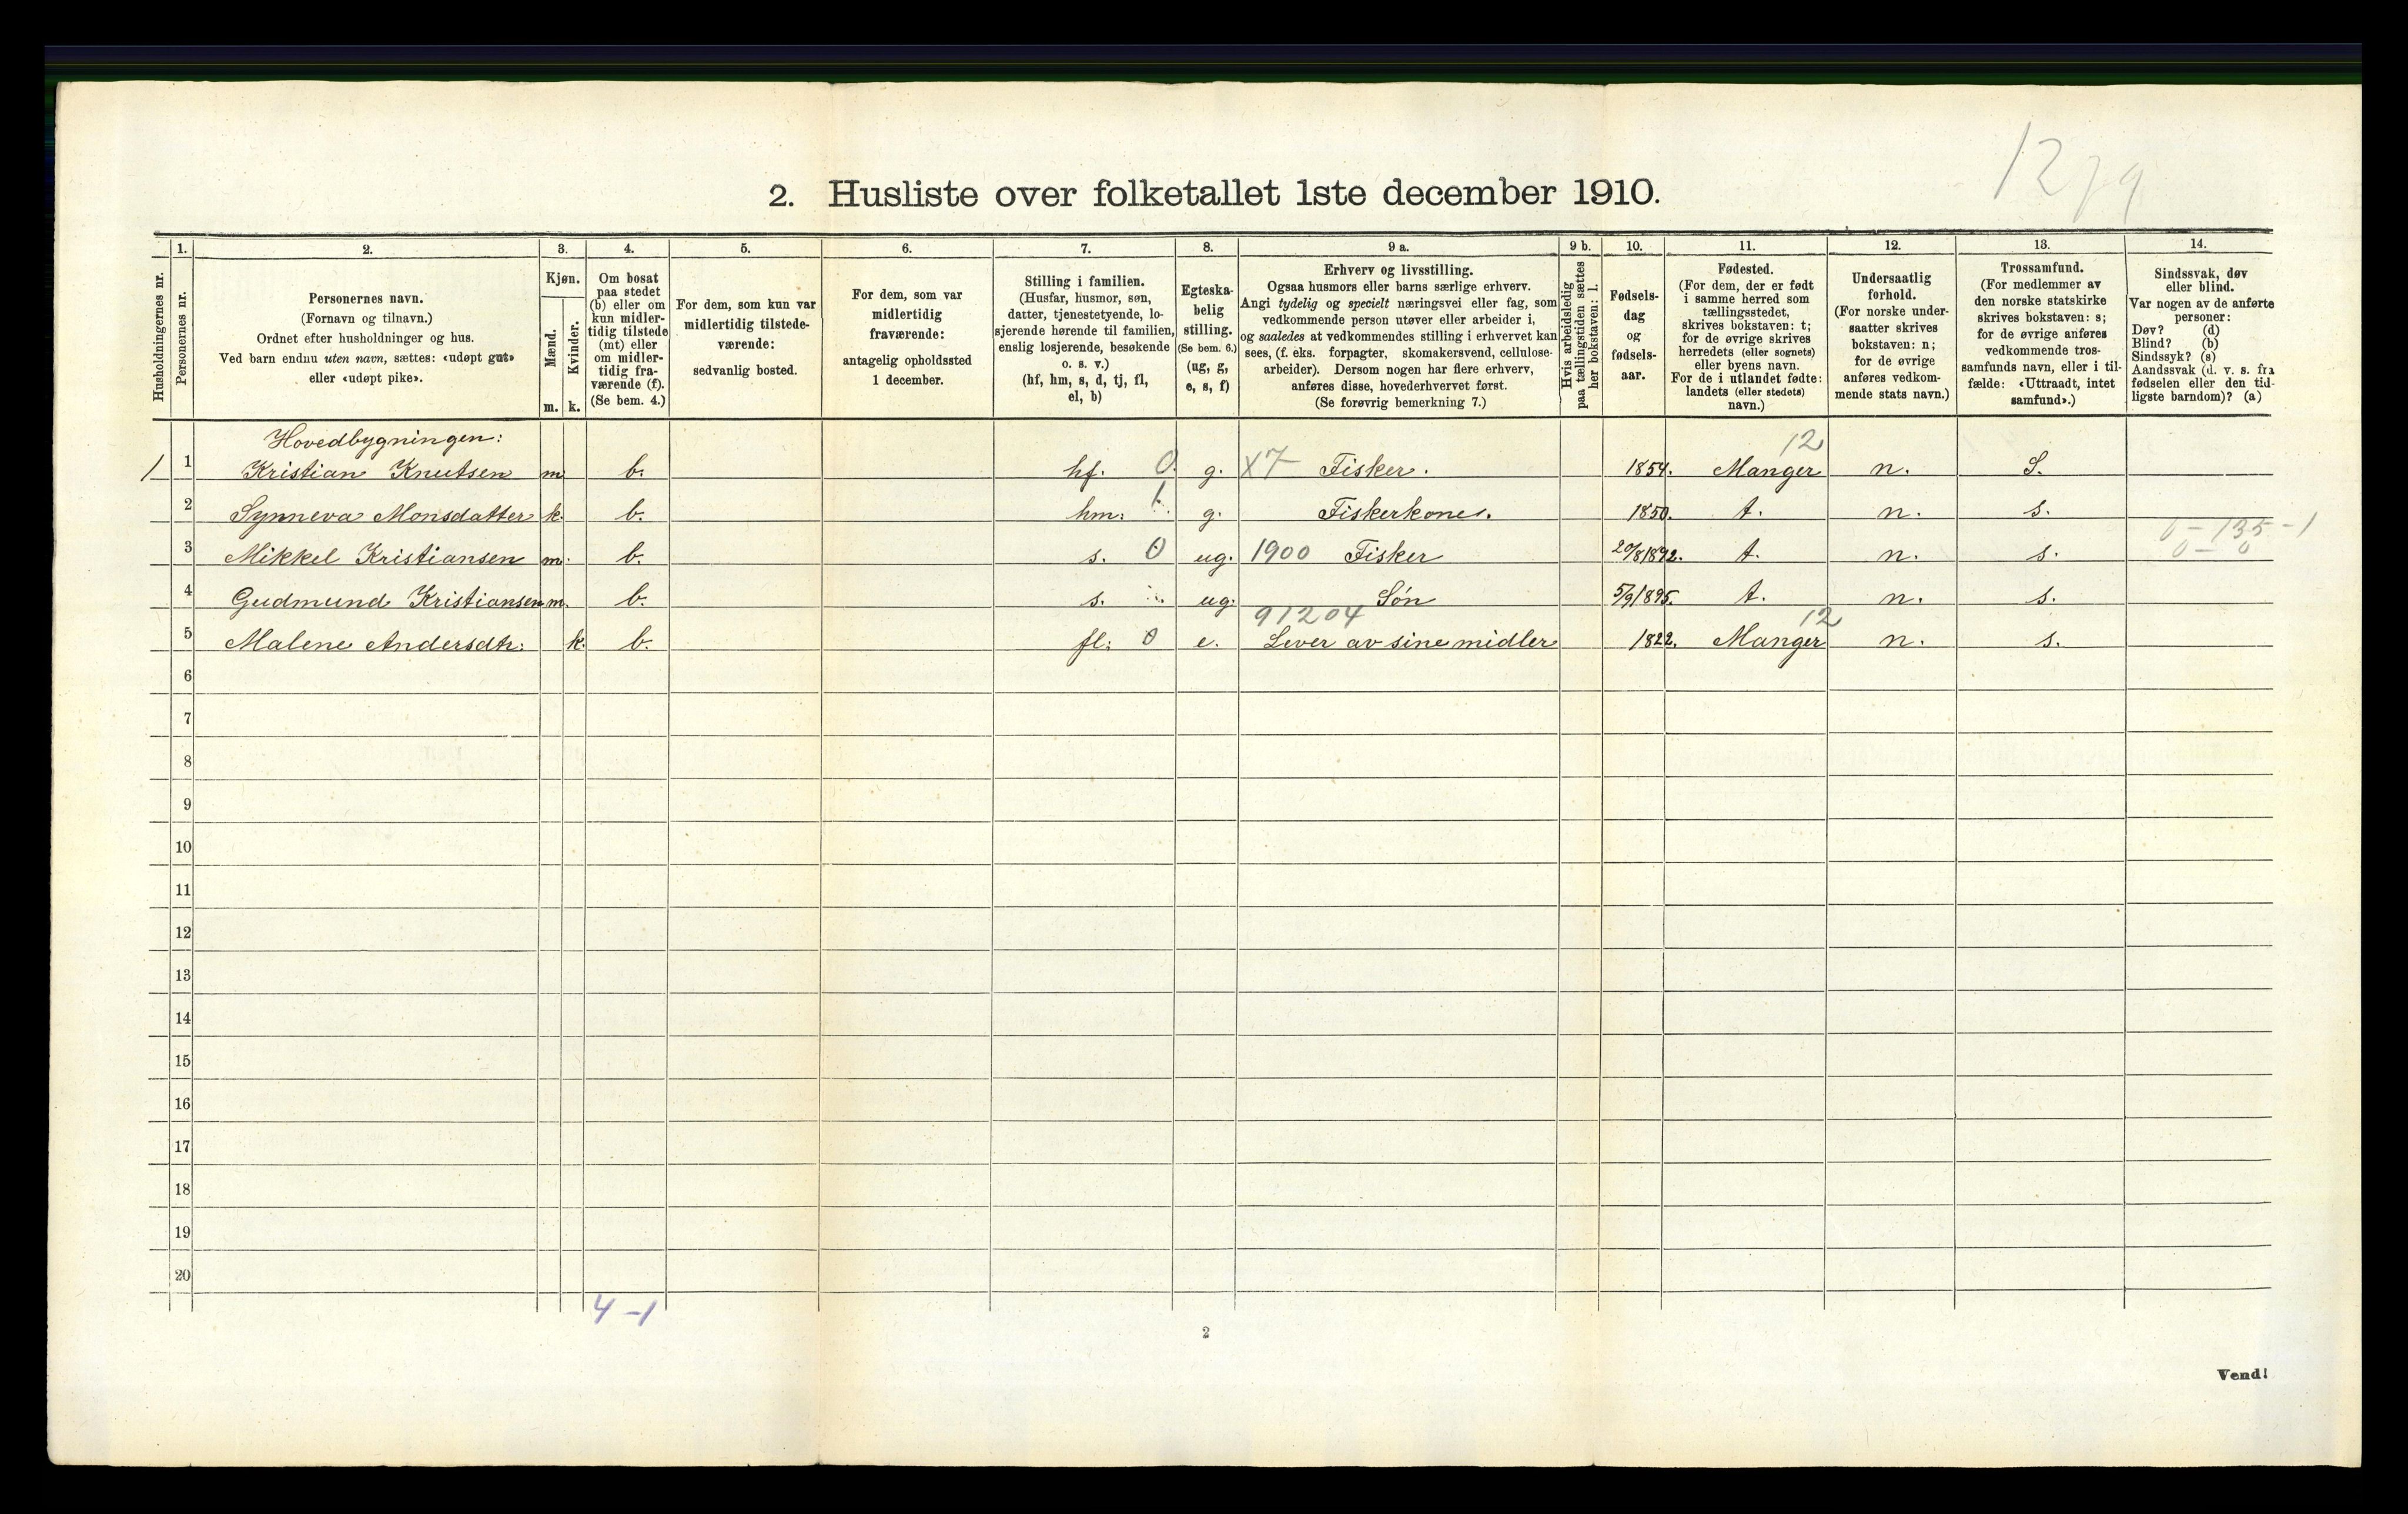 1279
2. Husliste over folketallet 1ste december 1910.
Husholdningernes nr.
1. Personernes nr.
2. Personernes navn.
(Fornavn og tilnavn.)
Ordnet efter husholdninger og hus.
Ved barn endnu uten navn, sættes: «udøpt gut»
eller «udøpt pike».
3. Kjøn.
Mænd. Kvinder.
m. k.
4. Om bosat
paa stedet
(b) eller om
kun midler-
tidig tilstede
(mt) eller
om midler-
tidig fra-
værende (f).
(Se bem. 4.)
5. For dem, som kun var
midlertidig tilstede-
værende:
sedvanlig bosted.
6. For dem, som var
midlertidig
fraværende:
antagelig opholdssted
1 december.
7. Stilling i familien.
(Husfar, husmor, søn,
datter, tjenestetyende, lo-
sjerende hørende til familien,
enslig losjerende, besøkende
o. s. v.)
(hf, hm, s, d, tj, fl,
el, b)
8. Egteska-
belig
stilling.
(Se bem. 6.)
(ug, g,
e, s, f)
9 a. Erhverv og livsstilling.
Ogsaa husmors eller barns særlige erhverv.
Angi tydelig og specielt næringsvei eller fag, som
vedkommende person utøver eller arbeider i,
og saaledes at vedkommendes stilling i erhvervet kan
sees, (f. eks. forpagter, skomakersvend, cellulose-
arbeider). Dersom nogen har flere erhverv,
anføres disse, hovederhvervet først.
(Se forøvrig bemerkning 7.)
9 b. Hvis arbeidsledig
paa tællingstiden sættes
her bokstaven: l.
10. Fødsels-
dag
og
fødsels-
aar.
11. Fødested.
(For dem, der er født
i samme herred som
tællingsstedet,
skrives bokstaven: t;
for de øvrige skrives
herredets (eller sognets)
eller byens navn.
For de i utlandet fødte:
landets (eller stedets)
navn.)
12. Undersaatlig
forhold.
(For norske under-
saatter skrives
bokstaven: n;
for de øvrige
anføres vedkom-
mende stats navn.)
13. Trossamfund.
(For medlemmer av
den norske statskirke
skrives bokstaven: s;
for de øvrige anføres
vedkommende tros-
samfunds navn, eller i til-
fælde: «Uttraadt, intet
samfund».)
14. Sindssvak, døv
eller blind.
Var nogen av de anførte
personer:
Døv? (d)
Blind? (b)
Sindssyk? (s)
Aandssvak (d. v. s. fra
fødselen eller den tid-
ligste barndom)? (a)
Hovedbygningen: 12
1 1 Kristian Knutsen m. b. hf. 0 g. X7 Fisker. 1854. Manger n. S.
2 Synneva Monsdatter k. b. hm. 1. g. Fiskerkone. 1850. t. n. s.
0 - 135 - 1
3 Mikkel Kristiansen m. b. s. 0 ug. 1900 Fisker 20/8 1892. t. n. s. 0 - 0
4 Gudmund Kristiansen m. b. s. ug. Søn 5/9 1895. t. n. s.
91204 12
5 Malene Andersdtr. k. b. fl. 0 e. Lever av sine midler 1822. Manger n. s.
6
7
8
9
10
11
12
13
14
15
16
17
18
19
20
4 - 1
2
Vend!